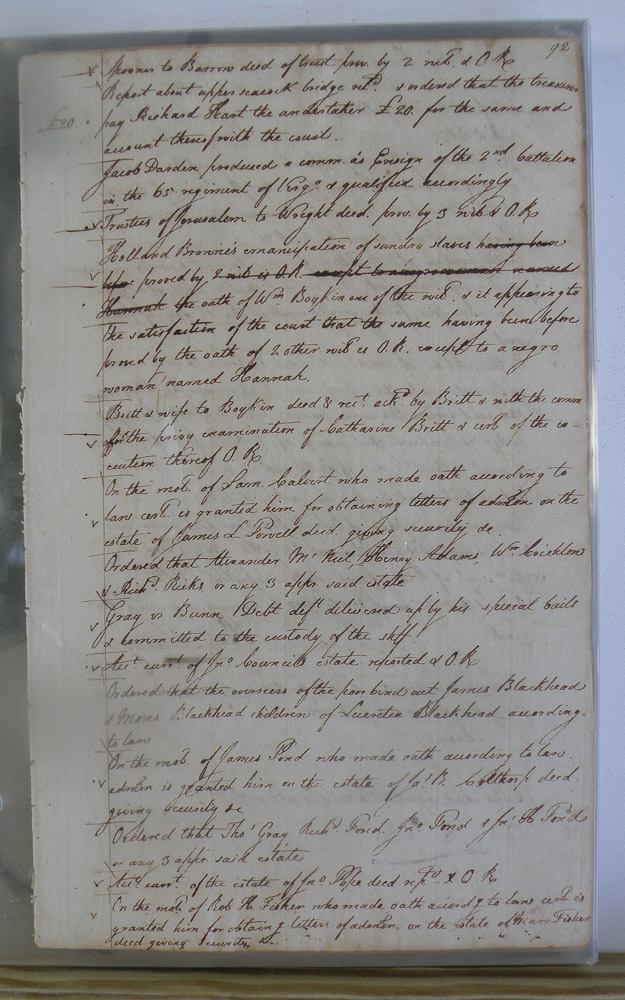 92
Spooner to Barrow deed of trust prov. by 2 witˢ & O. R
Report about upper seacock bridge retᵈ. & ordered that the treasurer
£20 pay Richard Hart the undertaker £20. for the same and
account thereof with the court.
Jacob Darden produced a comm. as Ensign of the 2nd battalion
in the 65 regiment of Virgᵃ & qualified accordingly
Trustees of Jerusalem to Wright deed. prov. by 3 witˢ & O. R
Holland Browne's emancipation of sundry slaves having been
before proved by 2 witˢ & O.R. except to a negro woman named
Hannah the oath of Wm Boykin one of the witˢ. & it appearing to
the satisfaction of the court that the same having been before
proved by the oath of 2 other witˢ & O. R. except to a negro
woman named Hannah.
Britt & wife to Boykin deed & recᵗ. ackᵈ. by Britt & with the comm
for the privy examination of Catharine Britt & cert of the ex-
ecution thereof O. R
On the moᵗ. of Calvert who made oath according to
law cert. is granted him for obtaining letters of admon on the
estate of James L Powell decd. giving security &c
Ordered that Alexander Mc Neil, Henry Adams Wm Crichlow
& Richᵈ. Ricks or any 3 appr. said estate
Gray vs Bunn Debt defᵗ delivered up by his special bails
& committed to the custody of the shff.
Acᵗ. currᵗ. of Jnᵒ Councils estate reported & O. R
Ordered that the overseers of the poor bind out James Blackhead
& Moses Blackhead children of Lucretia Blackhead according
to law
On the moᵗ. of James Pond who made oath according to law.
admon. is granted him on the estate of Jaˢ B. Calthorp decd.
giving security &c
Ordered that Thoˢ Gray Richᵈ. Pond. Jnᵒ Pond & Jnᵒ H Pond
or any 3 appr. said estate
Acᵗ. currᵗ. of the estate of Jnᵒ Pope decd repᵗᵈ. & O. R
On the moᵗ. of Rob H. Fisher who made oath accordᵍ to law cert. is
granted him for obtainᵍ letters of admon. on the estate of Fisher
decd giving security &c.